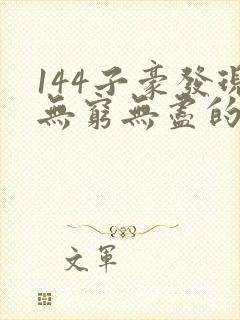 144子豪發現
無窮無盡的
文軍